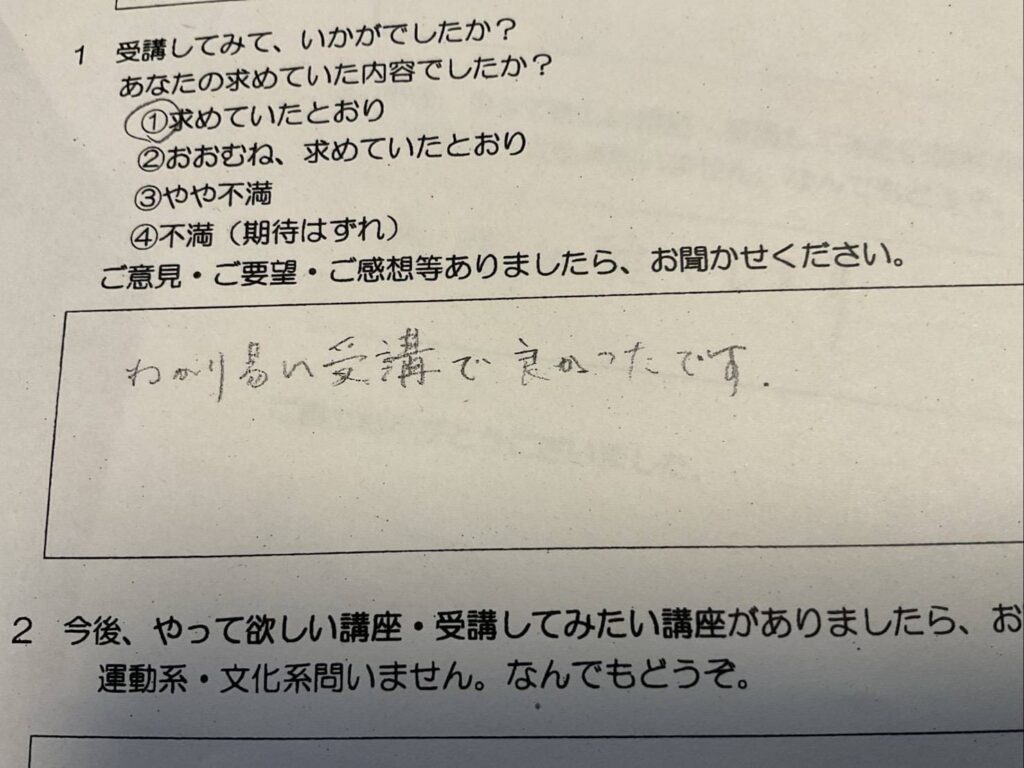 1 受講してみて、いかがでしたか?
あなたの求めていた内容でしたか?
①求めていたとおり
②おおむね、求めていたとおり
③やや不満
④不満(期待はずれ)
ご意見・ご要望・ご感想等ありましたら、お聞かせください。
わかり易い受講で良かったです.
2 今後、やって欲しい講座・受講してみたい講座がありましたら、お
運動系・文化系問いません。なんでもどうぞ。